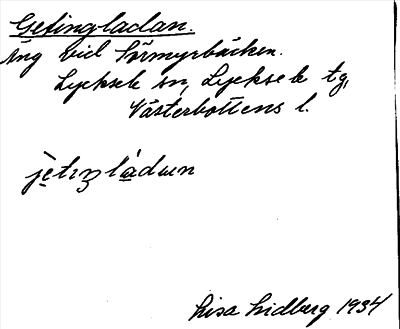 Getingladan.
Äng vid Törmyrbäcken.
Lycksele sn, Lycksele tg,
Västerbottens l.
jètıŋládɯn
Lisa Lidberg 1934